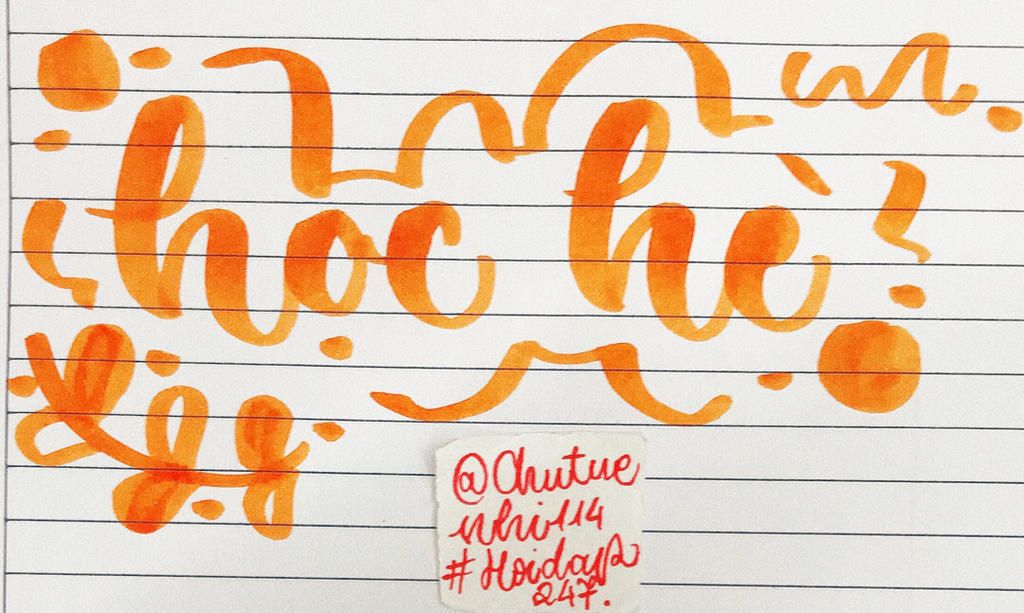 học hè
@Chutue
nhi114
#Hoidap
247.